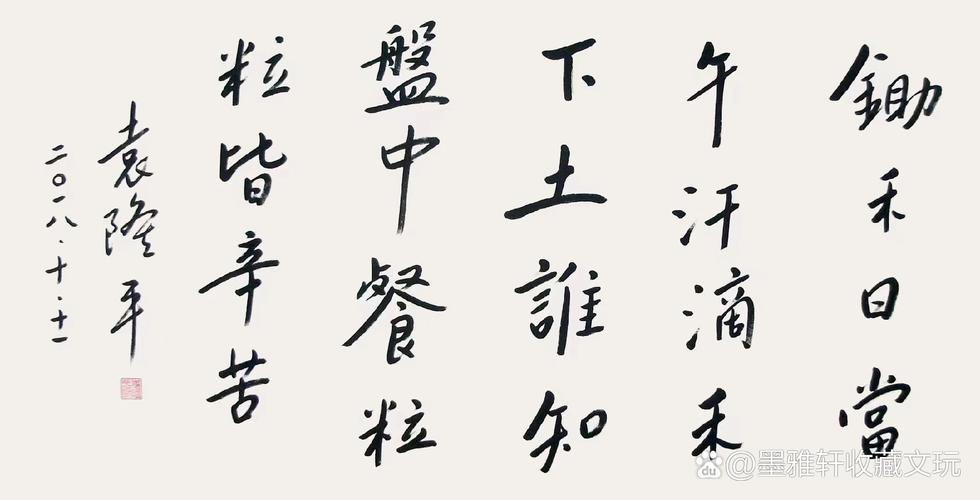 鋤禾日當
午汗滴禾
下土誰知
盤中餐粒
粒皆辛苦
袁隆平
二〇一八.十.十一
@墨雅轩收藏文玩